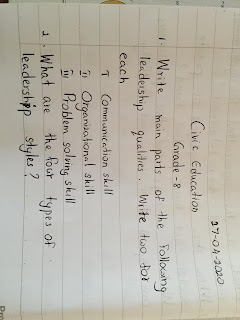 27-04-2020
Civic Education
Grade-8
1. Write main parts of the following
leadership qualities. Write two for
each
i Communication skill
ii) Organizational skill
iii) Problem solving skill
2. What are the four types of
leadership styles?